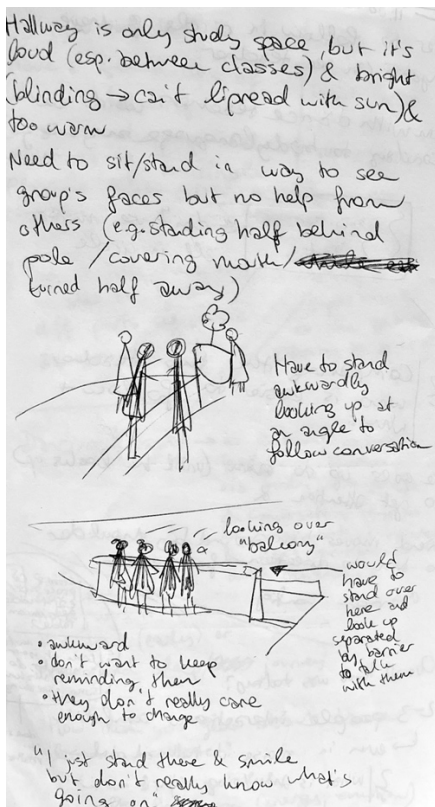 Hallway is only study space, but it's
loud (esp. between classes) & bright
(blinding → can't lipread with sun) &
too warm
Need to sit/stand in way to see
group's faces but no help from
others (e.g. standing half behind
pole / covering mouth /
turned half away)
Have to stand
awkwardly
looking up at
an angle to
follow conversation
looking over
"balcony"
would
have to
stand over
here and
look up
separated
by barrier
to talk
with them
• awkward
• don't want to keep
reminding them
• they don't really care
enough to change
"I just stand there & smile
but don't really know what's
going on"